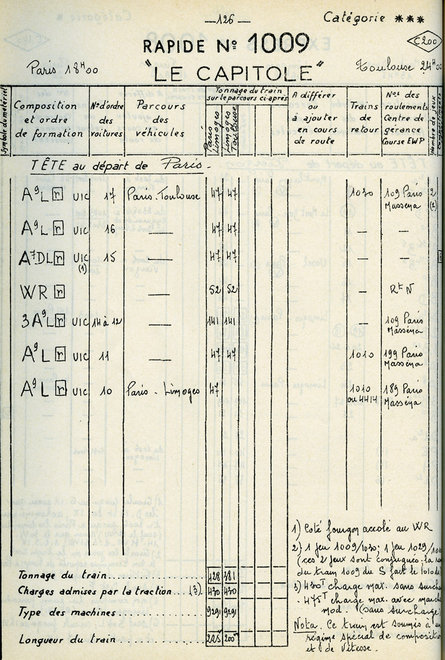 —126—
Catégorie ***
RAPIDE No 1009
C200
Paris 18H00
"LE CAPITOLE"
Toulouse 24H00
Symbole du matériel
Composition et ordre de formation
N° d'ordre des voitures
Parcours des véhicules
Tonnage du train sur le parcours ci-après
Paris Limoges
Limoges Toulouse
A différer ou à ajouter en cours de route
Trains de retour
Nos des roulements Centre de gérance Course EWP
Nombre de
TÊTE au départ de Paris
A9L r UIC 17 Paris-Toulouse 47 47 1010 109 Paris Masséna
A9L r UIC 16 — 47 47 — —
A7DL r UIC (1) 15 — 47 47 — —
WR r UIC — 52 52 — Rt N
3A9L r UIC 14 à 12 — 141 141 — 109 Paris Masséna
A9L r UIC 11 — 47 47 1010 199 Paris Masséna
A9L r UIC 10 Paris - Limoges 47 1010 ou 4414 189 Paris Masséna
1) Coté fourgon accolé au WR
2) 1 jeu 1009/1010; 1 jeu 1029/10
(ces 2 jeux sont conjugués: la
du train 1009 du S fait le
3) 430T charge max. sans surch
475T charge max. avec
mod. (sans surcharge
Nota. Ce train est soumis à
régime spécial de composition
et de vitesse.
Tonnage du train 428 381
Charges admises par la traction (3) 430 430
Type des machines 9291 9291
Longueur du train 225 200